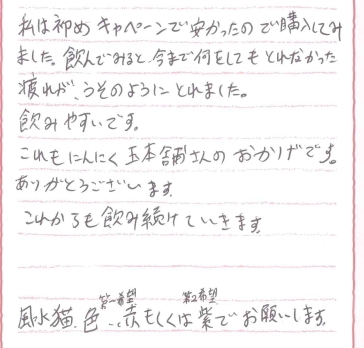 私は初めキャペーンで安かったので購入してみ
ました。飲んでみると、今まで何をしてもとれなかった
疲れが、うそのようにとれました。
飲みやすいです。
これもにんにく玉本舗さんのおかげです。
ありがとうございます。
これからも飲み続けていきます。
第一希望 第2希望
風水猫、色…赤もしくは紫でお願いします。